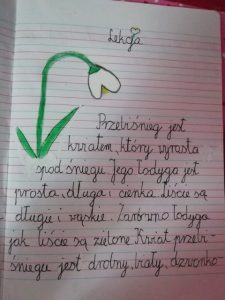 Lekcja
Przebiśnieg jest
kwiatem, który wyrasta
spod śniegu. Jego łodyga jest
prosta, długa i cienka. Liście są
długie i wąskie. Zarówno łodyga
jak liście są zielone. Kwiat przebi-
śniegu jest drobny, biały, dzwonko-